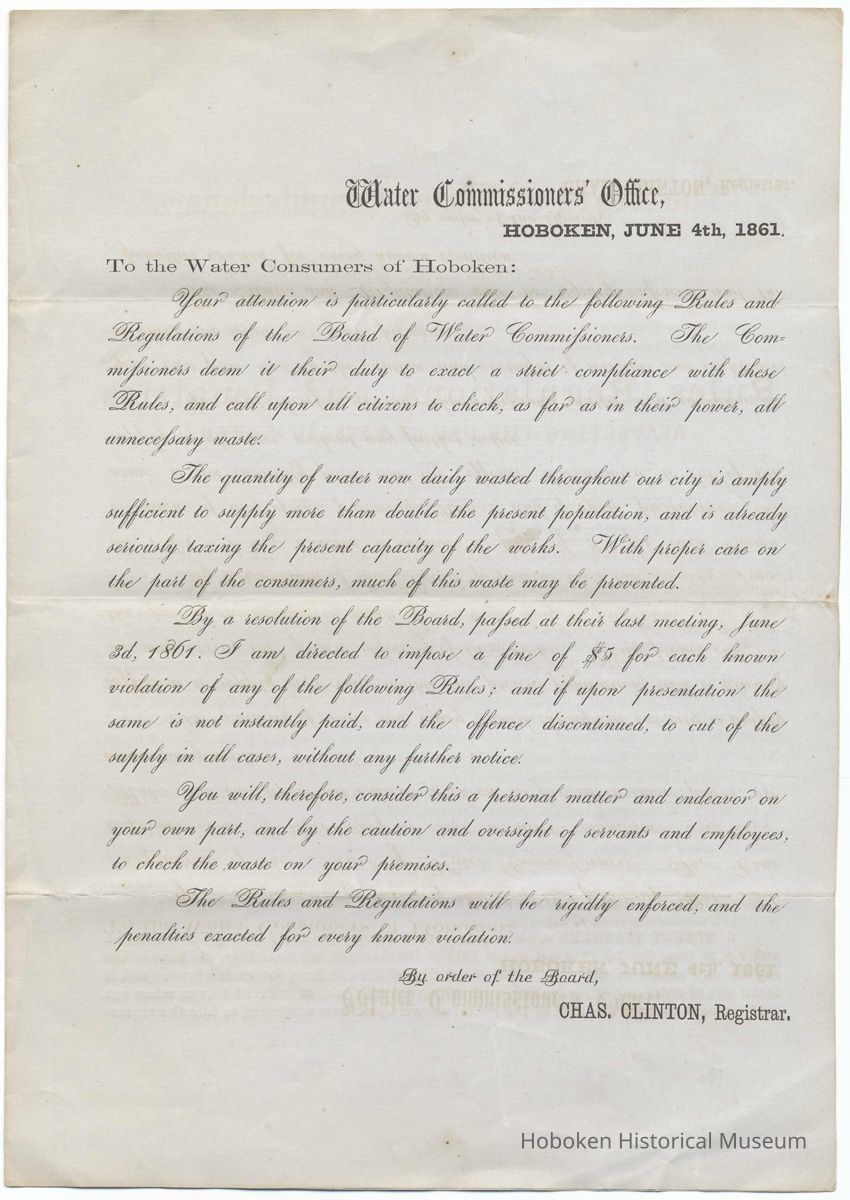 Water Commissioners' Office,
HOBOKEN, JUNE 4th, 1861.
To the Water Consumers of Hoboken:
Your attention is particularly called to the following Rules and
Regulations of the Board of Water Commiſsioners. The Com-
miſsioners deem it their duty to exact a strict compliance with these
Rules, and call upon all citizens to check, as far as in their power, all
unneceſsary waste.
The quantity of water now daily wasted throughout our city is amply
sufficient to supply more than double the present population, and is already
seriously taxing the present capacity of the works. With proper care on
the part of the consumers, much of this waste may be prevented.
By a resolution of the Board, paſsed at their last meeting, June
3d, 1861. I am directed to impose a fine of $5 for each known
violation of any of the following Rules; and if upon presentation the
same is not instantly paid, and the offence discontinued, to cut of the
supply in all cases, without any further notice.
You will, therefore, consider this a personal matter and endeavor on
your own part, and by the caution and oversight of servants and employees,
to check the waste on your premises.
The Rules and Regulations will be rigidly enforced, and the
penalties exacted for every known violation.
By order of the Board,
CHAS. CLINTON, Registrar.
Hoboken Historical Museum